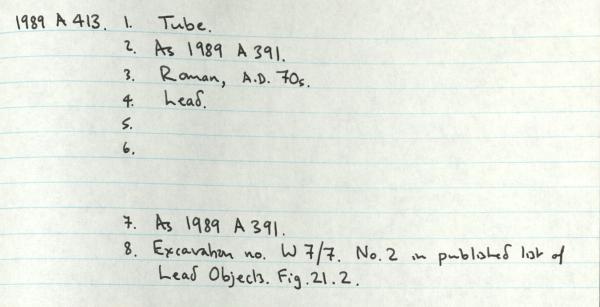 1989 A 413. 1. Tube.
2. As 1989 A 391.
3. Roman, A.D. 70s.
4. Lead.
5.
6.
7. As 1989 A 391.
8. Excavation no. W 7/7. No. 2 in published list of
Lead Objects. Fig. 21. 2.